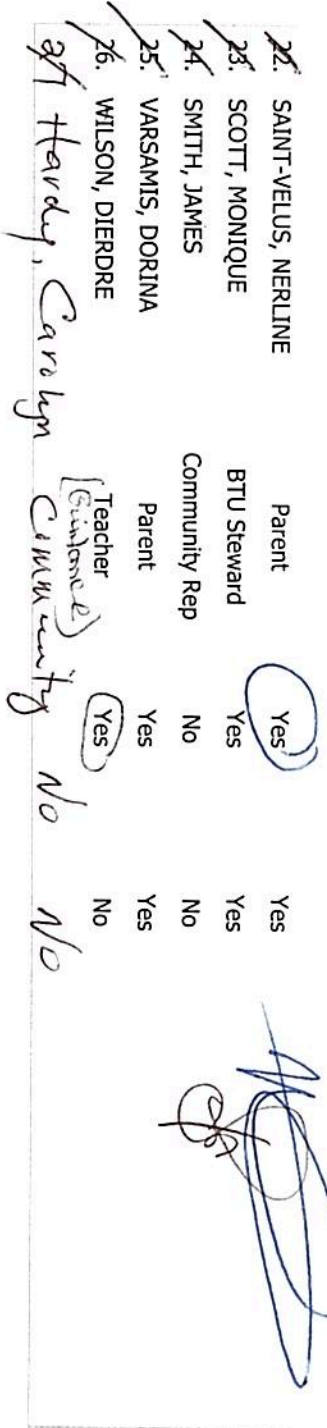 22. SAINT-VELUS, NERLINE Parent Yes Yes
23. SCOTT, MONIQUE BTU Steward Yes Yes
24. SMITH, JAMES Community Rep No No
25. VARSAMIS, DORINA Parent Yes Yes
26. WILSON, DIERDRE Teacher Yes No
(Guidance)
27 Hardy, Carolyn Community No No